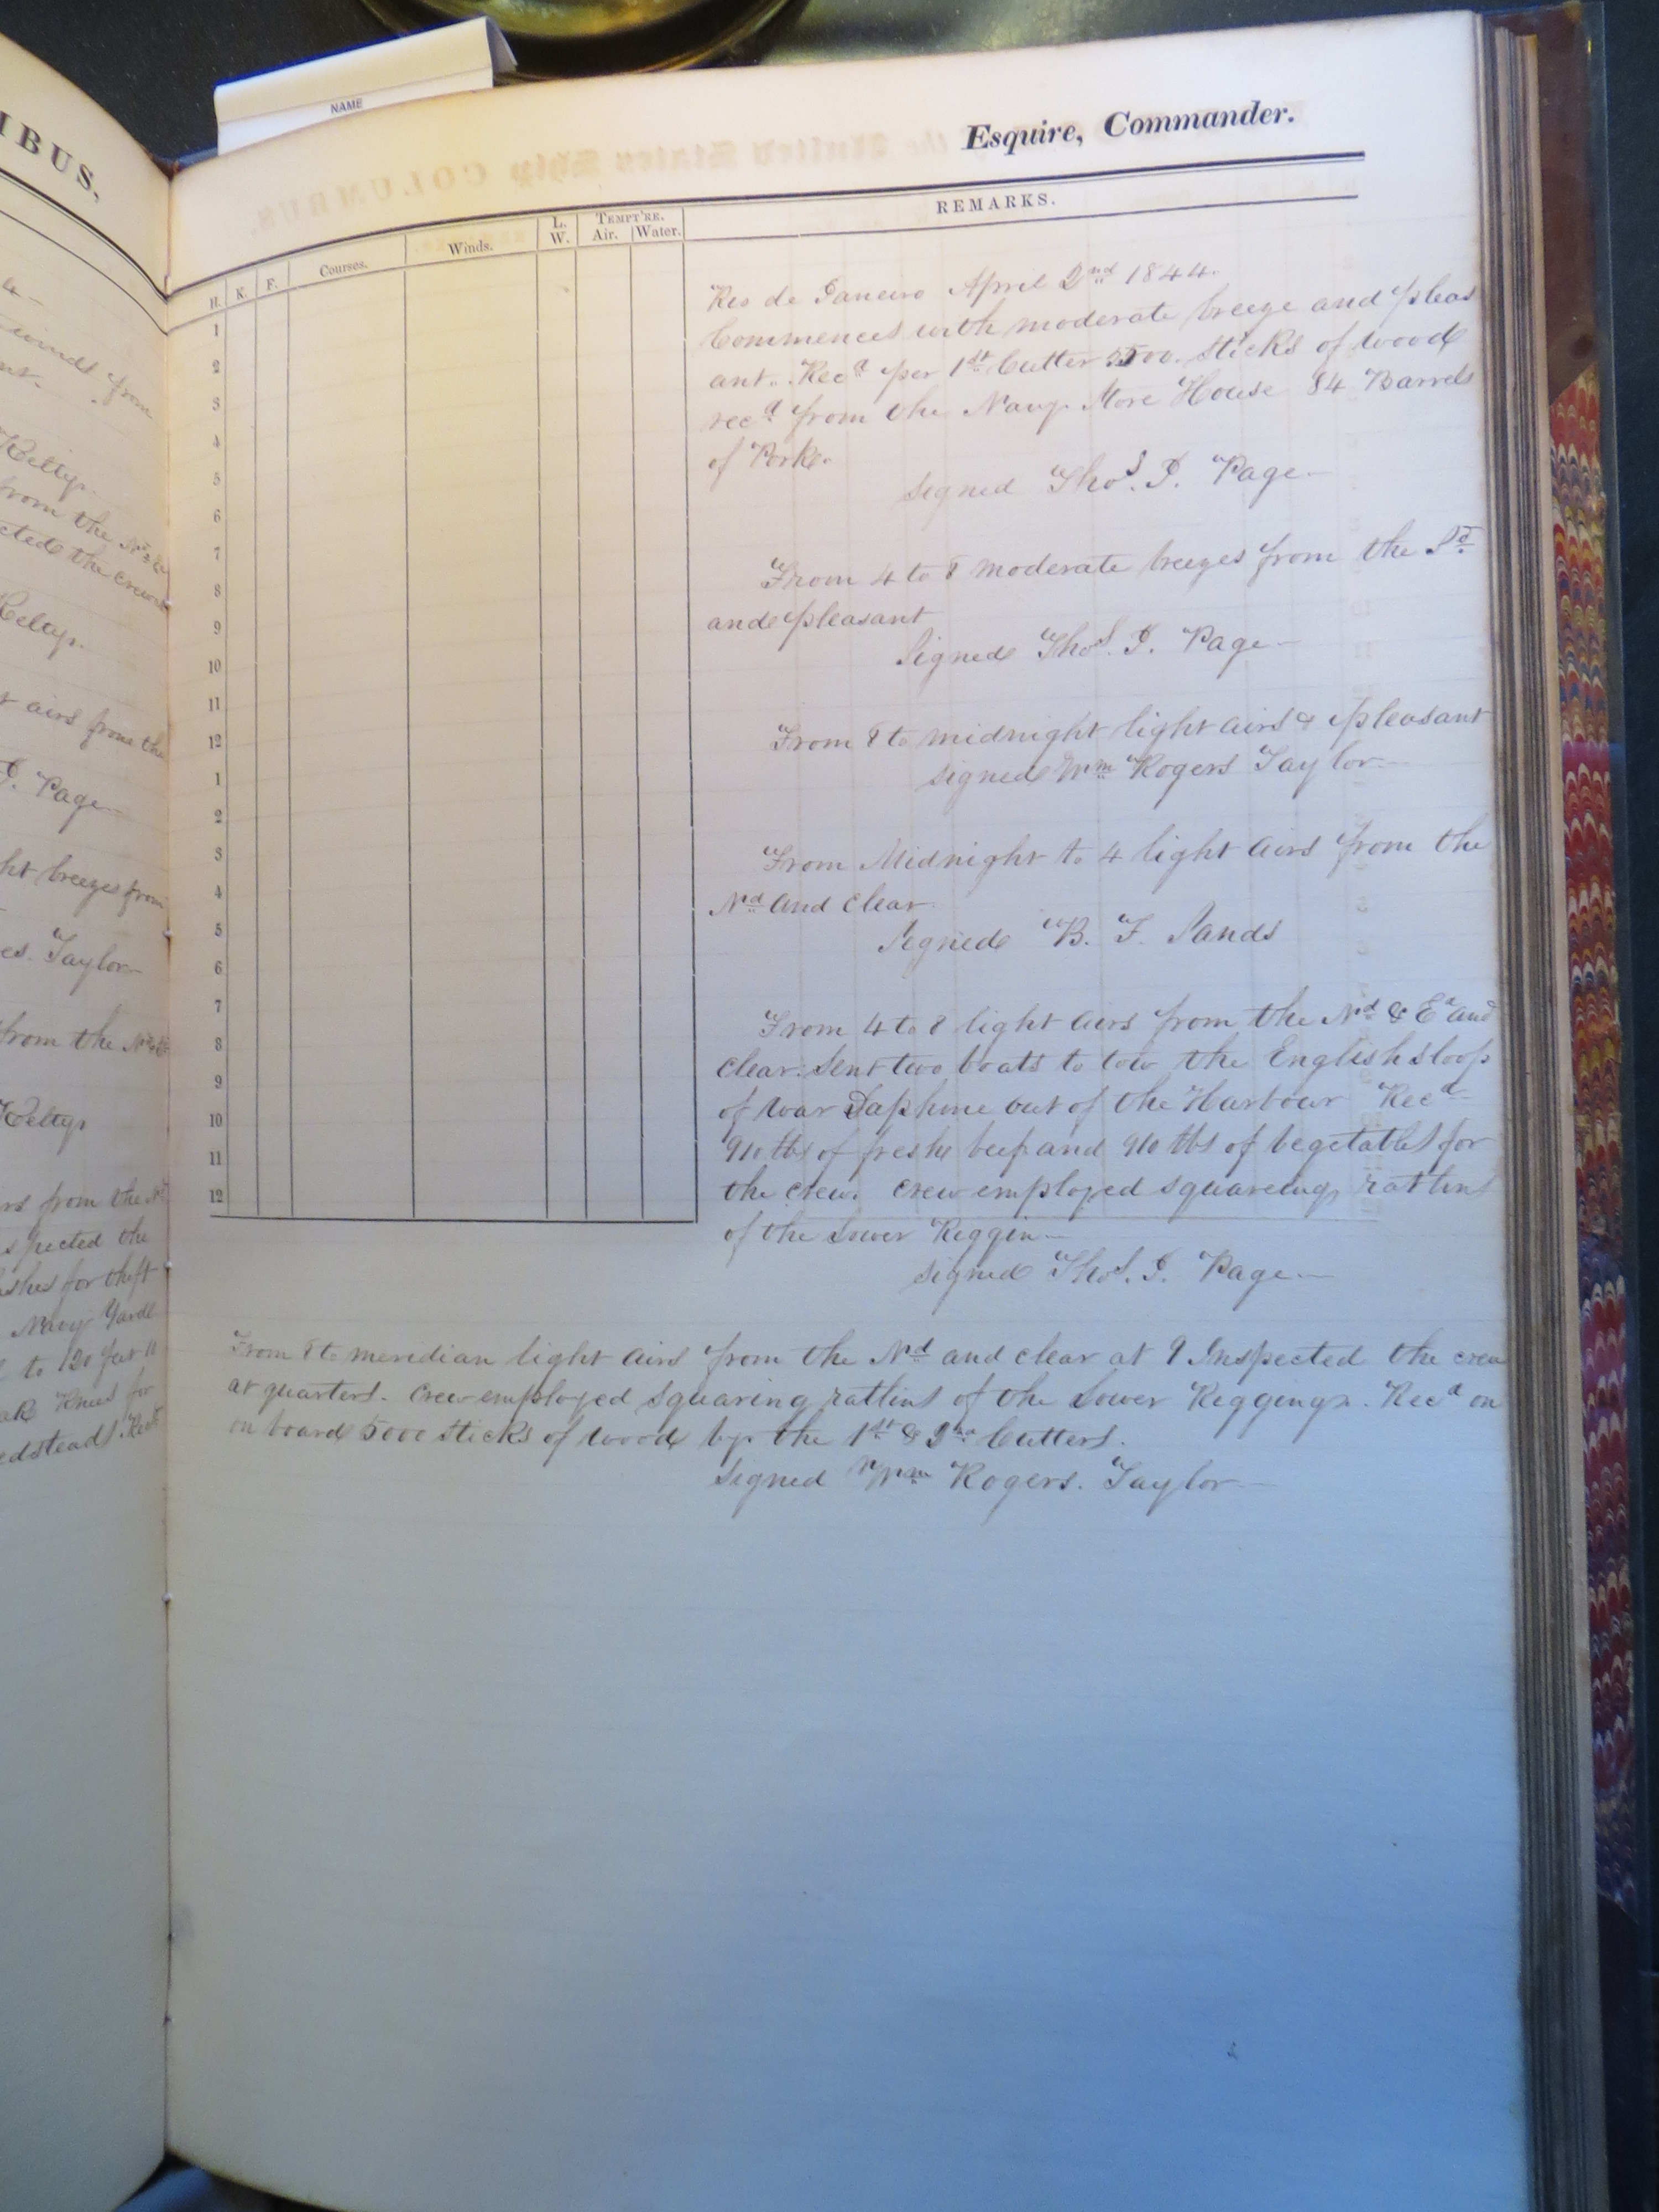 IBUS.
NAME
Esquire, Commander.
H. K. F. Courses. Winds. L. W. TEMPT'RE. Air. Water. REMARKS.
1
2
3
4
5
6
7
8
9
10
11
12
1
2
3
4
5
6
7
8
9
10
11
12
Rio de Janeiro April 2nd 1844.
Commences with moderate breeze and pleas
ant.. Recd per 1st Cutter sticks of wood
recd from the Navy Store House 84 Barrels
of Pork.
Signed Thos. J. Page
From 4 to 8 moderate breezes from the Sd
and pleasant
Signed Thos. J. Page
From 8 to midnight light airs & pleasant
signed Wm Rogers Taylor
From Midnight to 4 light airs from the
Nd and clear.
Signed B. F. Sands
From 4 to 8 light airs from the Nd & Ed and
clear. Sent two boats to tow the English sloop
of war Daphne out of the Harbour Recd
910 lbs of fresh beef and 910 lbs of vegetables for
the crew. crew employed squareing ratlins
of the Lower Riggin
signed Thos. J. Page
From 8 to meridian light airs from the Nd and clear at 9 Inspected the crew
at quarters. crew employed squaring ratlins of the Lower Rigging. Recd on
on board 5000 sticks of wood by the 1st & Cutters.
Signed Wm Rogers. Taylor
winds from
from the
cted the crew
airs from the
J. Page
ht breezes from
es. Taylor
from the
rs from the
spected the
ashes for theft
Navy Yard
to 120 feet
Knees for
edsteads. Recd